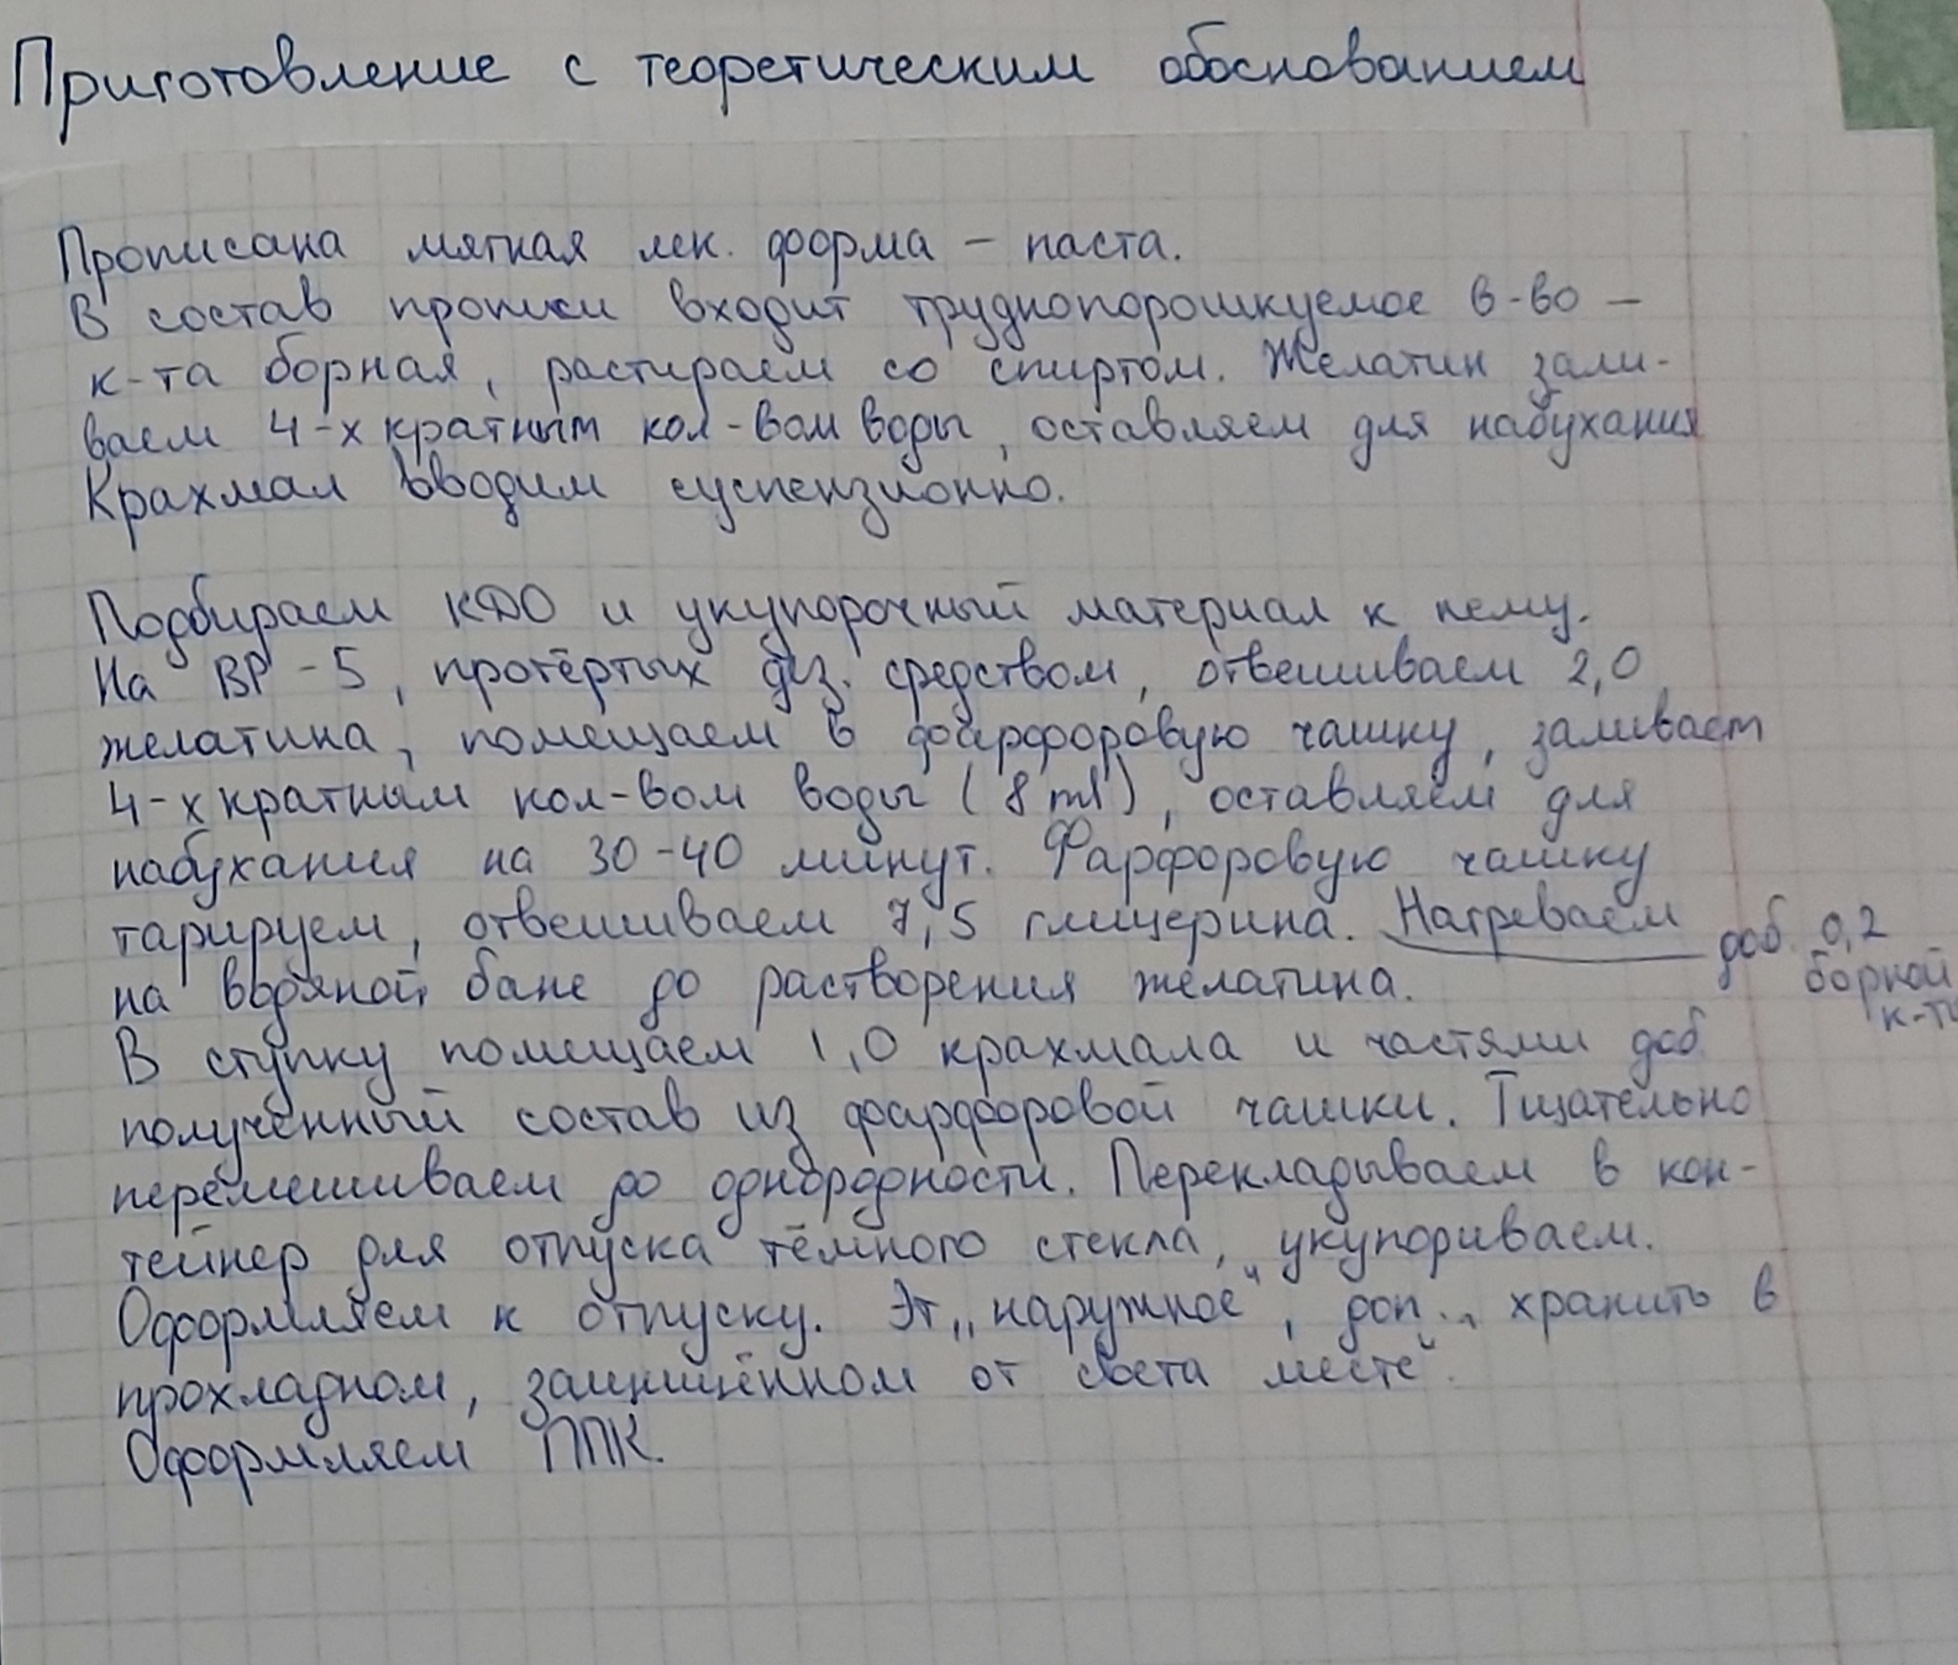 Приготовление с теоретическим обоснованием
Прописана мягкая лек. форма – паста.
В состав прописи входит труднопорошкуемое в-во –
к-та борная, растираем со спиртом. Желатин зали-
ваем 4-х кратным кол-вом воды, оставляем для набухания
Крахмал вводим суспензионно.
Подбираем КДО и укупорочный материал к нему.
На ВР-5, протёртых диз. средством, отвешиваем 2,0
желатина, помещаем в фарфоровую чашку, заливаем
4-х кратным кол-вом воды (8 ml), оставляем для
набухания на 30-40 минут. Фарфоровую чашку
тарируем, отвешиваем 7,5 глицерина. Нагреваем
доб. 0,2
борной
к-ты
на водяной бане до растворения желатина.
В ступку помещаем 1,0 крахмала и частями доб.
полученный состав из фарфоровой чашки. Тщательно
перемешиваем до однородности. Перекладываем в кон-
тейнер для отпуска тёмного стекла, укупориваем.
Оформляем к отпуску. Эт „наружное“, доп. „хранить в
прохладном, защищённом от света месте“.
Оформляем ППК.